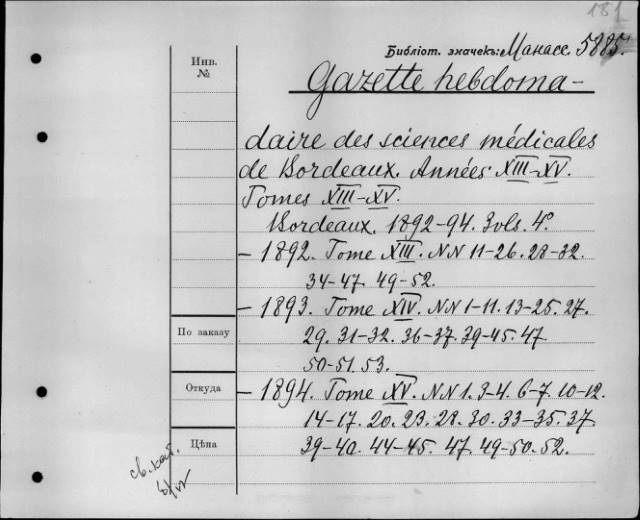 181
Библіот. значекъ: Манасс. 5885.
Инв.
№
Gazette hebdoma-
daire des sciences médicales
de Bordeaux. Années XIII-XV.
Tomes XIII-XV.
Bordeaux. 1892-94. 3 vls. 4°.
- 1892. Tome XIII. NN 11-26. 28-32.
34-47. 49-52.
- 1893. Tome XIV. NN 1-11. 13-25. 27.
По заказу
29. 31-32. 36-37. 39-45. 47
50-51. 53.
Откуда
- 1894. Tome XV. NN 1. 3-4. 6-7. 10-12.
14-17. 20. 23. 28. 30. 33-35. 37
Цѣна
39-40. 44-45. 47. 49-50. 52.
св. кат.